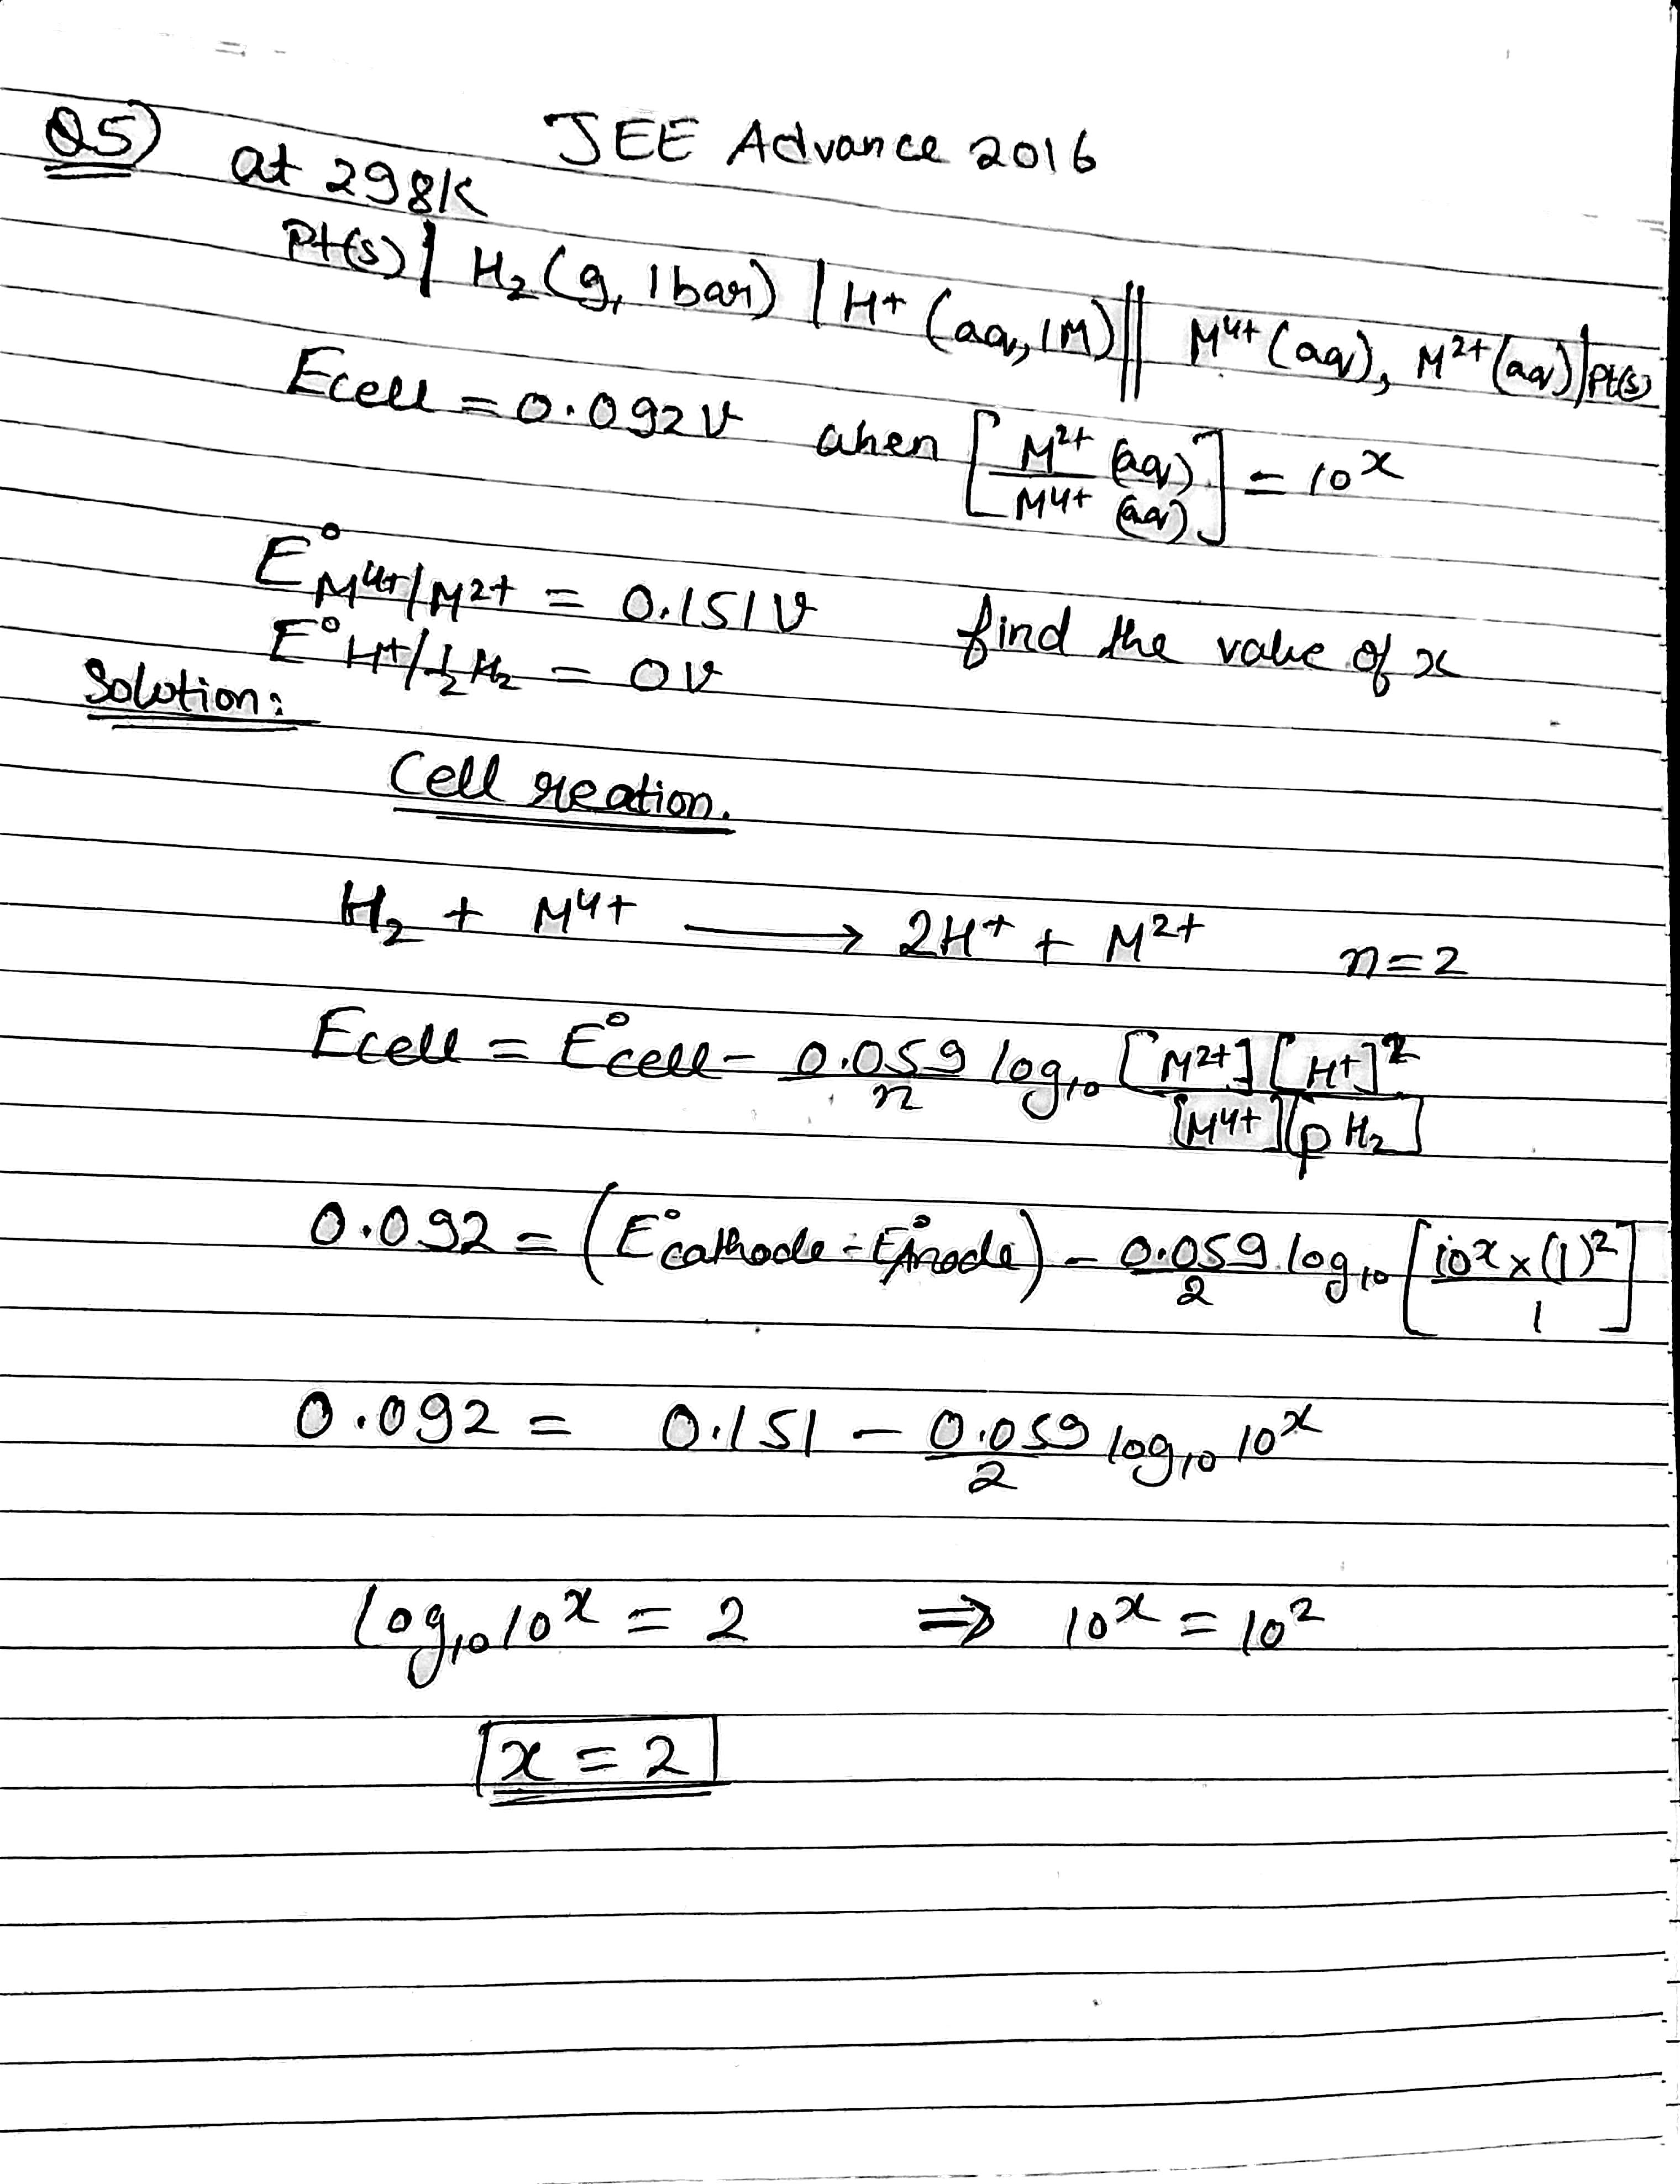 Q5) JEE Advance 2016
at 298K
Pt(s) | H₂ (g, 1bar) | H+ (aq, 1M) || M⁴⁺ (aq), M²⁺ (aq) | Pt(s)
Ecell = 0.092 V when [M²⁺ (aq) / M⁴⁺ (aq)] = 10ˣ
E° M⁴⁺/M²⁺ = 0.151 V find the value of x
E° H+/½ H₂ = 0 V
Solution:
Cell reation.
H₂ + M⁴⁺ ⟶ 2H⁺ + M²⁺ n=2
Ecell = E°cell - 0.059/n log₁₀ [M²⁺][H⁺]² / [M⁴⁺][pH₂]
0.092 = (E°cathode - E°Anode) - 0.059/2 log₁₀ [10ˣ × (1)² / 1]
0.092 = 0.151 - 0.059/2 log₁₀ 10ˣ
log₁₀ 10ˣ = 2 ⇒ 10ˣ = 10²
x = 2